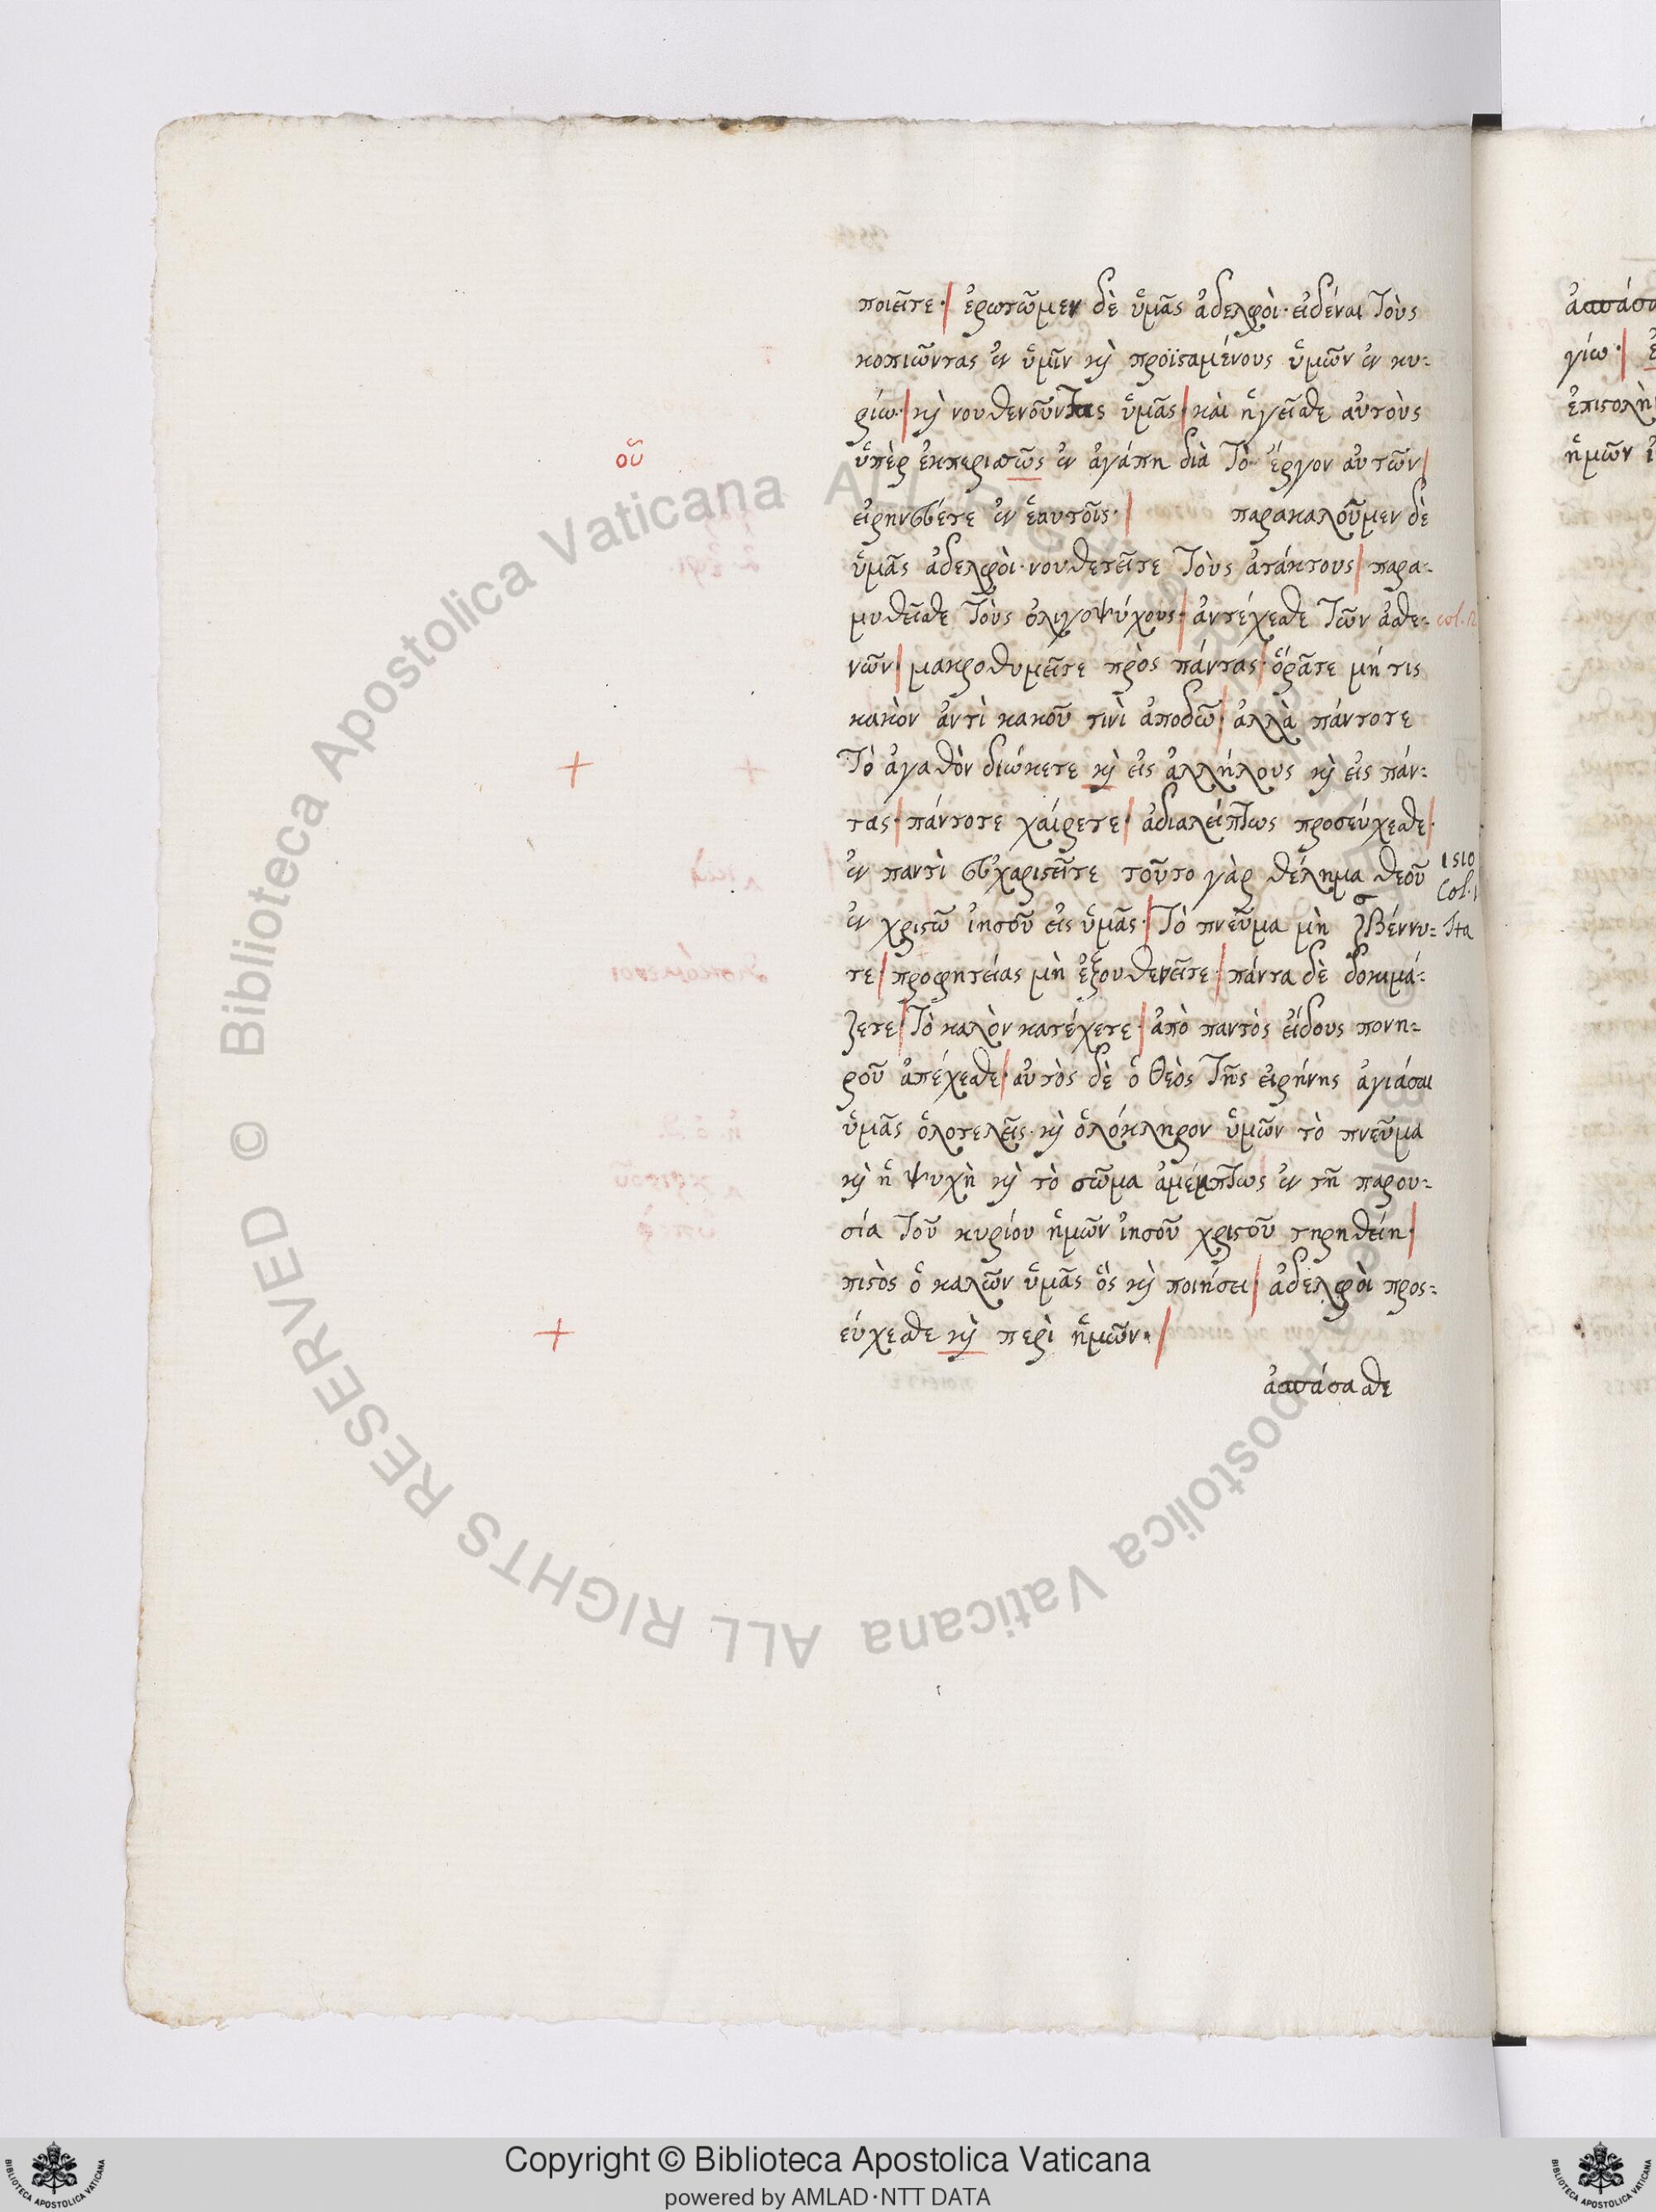 ποιεῖτε· ἐρωτῶμεν δὲ ὑμᾶς ἀδελφοὶ· εἰδέναι τοὺς
κοπιῶντας ἐν ὑμῖν κὶ προϊσταμένους ὑμῶν ἐν κυ-
ρίω· κὶ νουθενοῦντας ὑμᾶς· καὶ ἡγεῖσθε αὐτοὺς
οῦ
ὑπὲρ ἐκπερισσῶς ἐν ἀγάπη διὰ τὸ ἔργον αὐτῶν
εἰρηνεύετε ἐν ἑαυτοῖς· παρακαλοῦμεν δὲ
ὑμᾶς ἀδελφοὶ· νουθετεῖτε τοὺς ἀτάκτους παρα-
μυθεῖσθε τοὺς ὀλιγοψύχους· ἀντέχεσθε τῶν ἀσθε- col.
νῶν μακροθυμεῖτε πρὸς πάντας· ὁρᾶτε μή τις
κακὸν ἀντὶ κακοῦ τινὶ ἀποδῶ· ἀλλὰ πάντοτε
τὸ ἀγαθὸν διώκετε κὶ εἰς ἀλλήλους κὶ εἰς πάν-
τας· πάντοτε χαίρετε· ἀδιαλείπτως προσεύχεσθε·
ἐν παντὶ εὐχαριστεῖτε τοῦτο γὰρ θέλημα θεοῦ 1510
Col. 1
ἐν χριστῶ ἰησοῦ εἰς ὑμᾶς· τὸ πνεῦμα μὴ ζβέννυ- Ita
σ
τε προφητείας μὴ ἐξουθενεῖτε· πάντα δὲ δοκιμά-
ζετε τὸ καλὸν κατέχετε· ἀπὸ παντὸς εἴδους πονη-
ροῦ ἀπέχεσθε· αὐτὸς δὲ ὁ θεὸς τῆς εἰρήνης ἁγιάσαι
ὑμᾶς ὁλοτελεῖς· κὶ ὁλόκληρον ὑμῶν τὸ πνεῦμα
κὶ ἡ ψυχὴ κὶ τὸ σῶμα ἀμέμπτως ἐν τῆ παρου-
σία τοῦ κυρίου ἡμῶν ἰησοῦ χριστοῦ τηρηθείη·
πιστὸς ὁ καλῶν ὑμᾶς ὃς κὶ ποιήσει· ἀδελφοὶ προς-
εύχεσθε κὶ περὶ ἡμῶν·
ἀσπάσασθε
γίω·
ἡμῶν
© Biblioteca Apostolica Vaticana ALL RIGHTS RESERVED
Copyright © Biblioteca Apostolica Vaticana
powered by AMLAD·NTT DATA
BIBLIOTECA APOSTOLICA VATICANA
BIBLIOTECA APOSTOLICA VATICANA